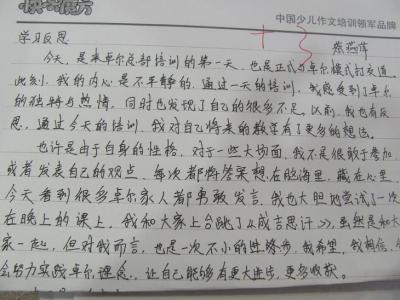 快乐魔方
中国少儿作文培训领军品牌
学习反思
蔡燕萍
今天，是来卓尔总部培训的第一天，也是正式与卓尔模式打交道。
此刻，我的内心是不平静的，通过一天的培训，我感受到了卓尔
的独特与热情，同时也发现了自己的很多不足。以前，我也有反
思，通过今天的培训，我对自己将来的教学有了更多的想法。
也许是由于自身的性格，对于一些大场面，我不是很敢于参加，
或者发表自己的观点，每次都将答案想在脑海里，藏在心里，
今天看到很多卓尔家人都勇敢发言，我也大胆地尝试了一次
在晚上的课上，我和大家上台跳了《成吉思汗》，虽然是和大
家一起，但对我而言，也是一次不小的进步，我希望，我相信，
会努力实践卓尔理念，让自己能够有更大进步，更多收获。